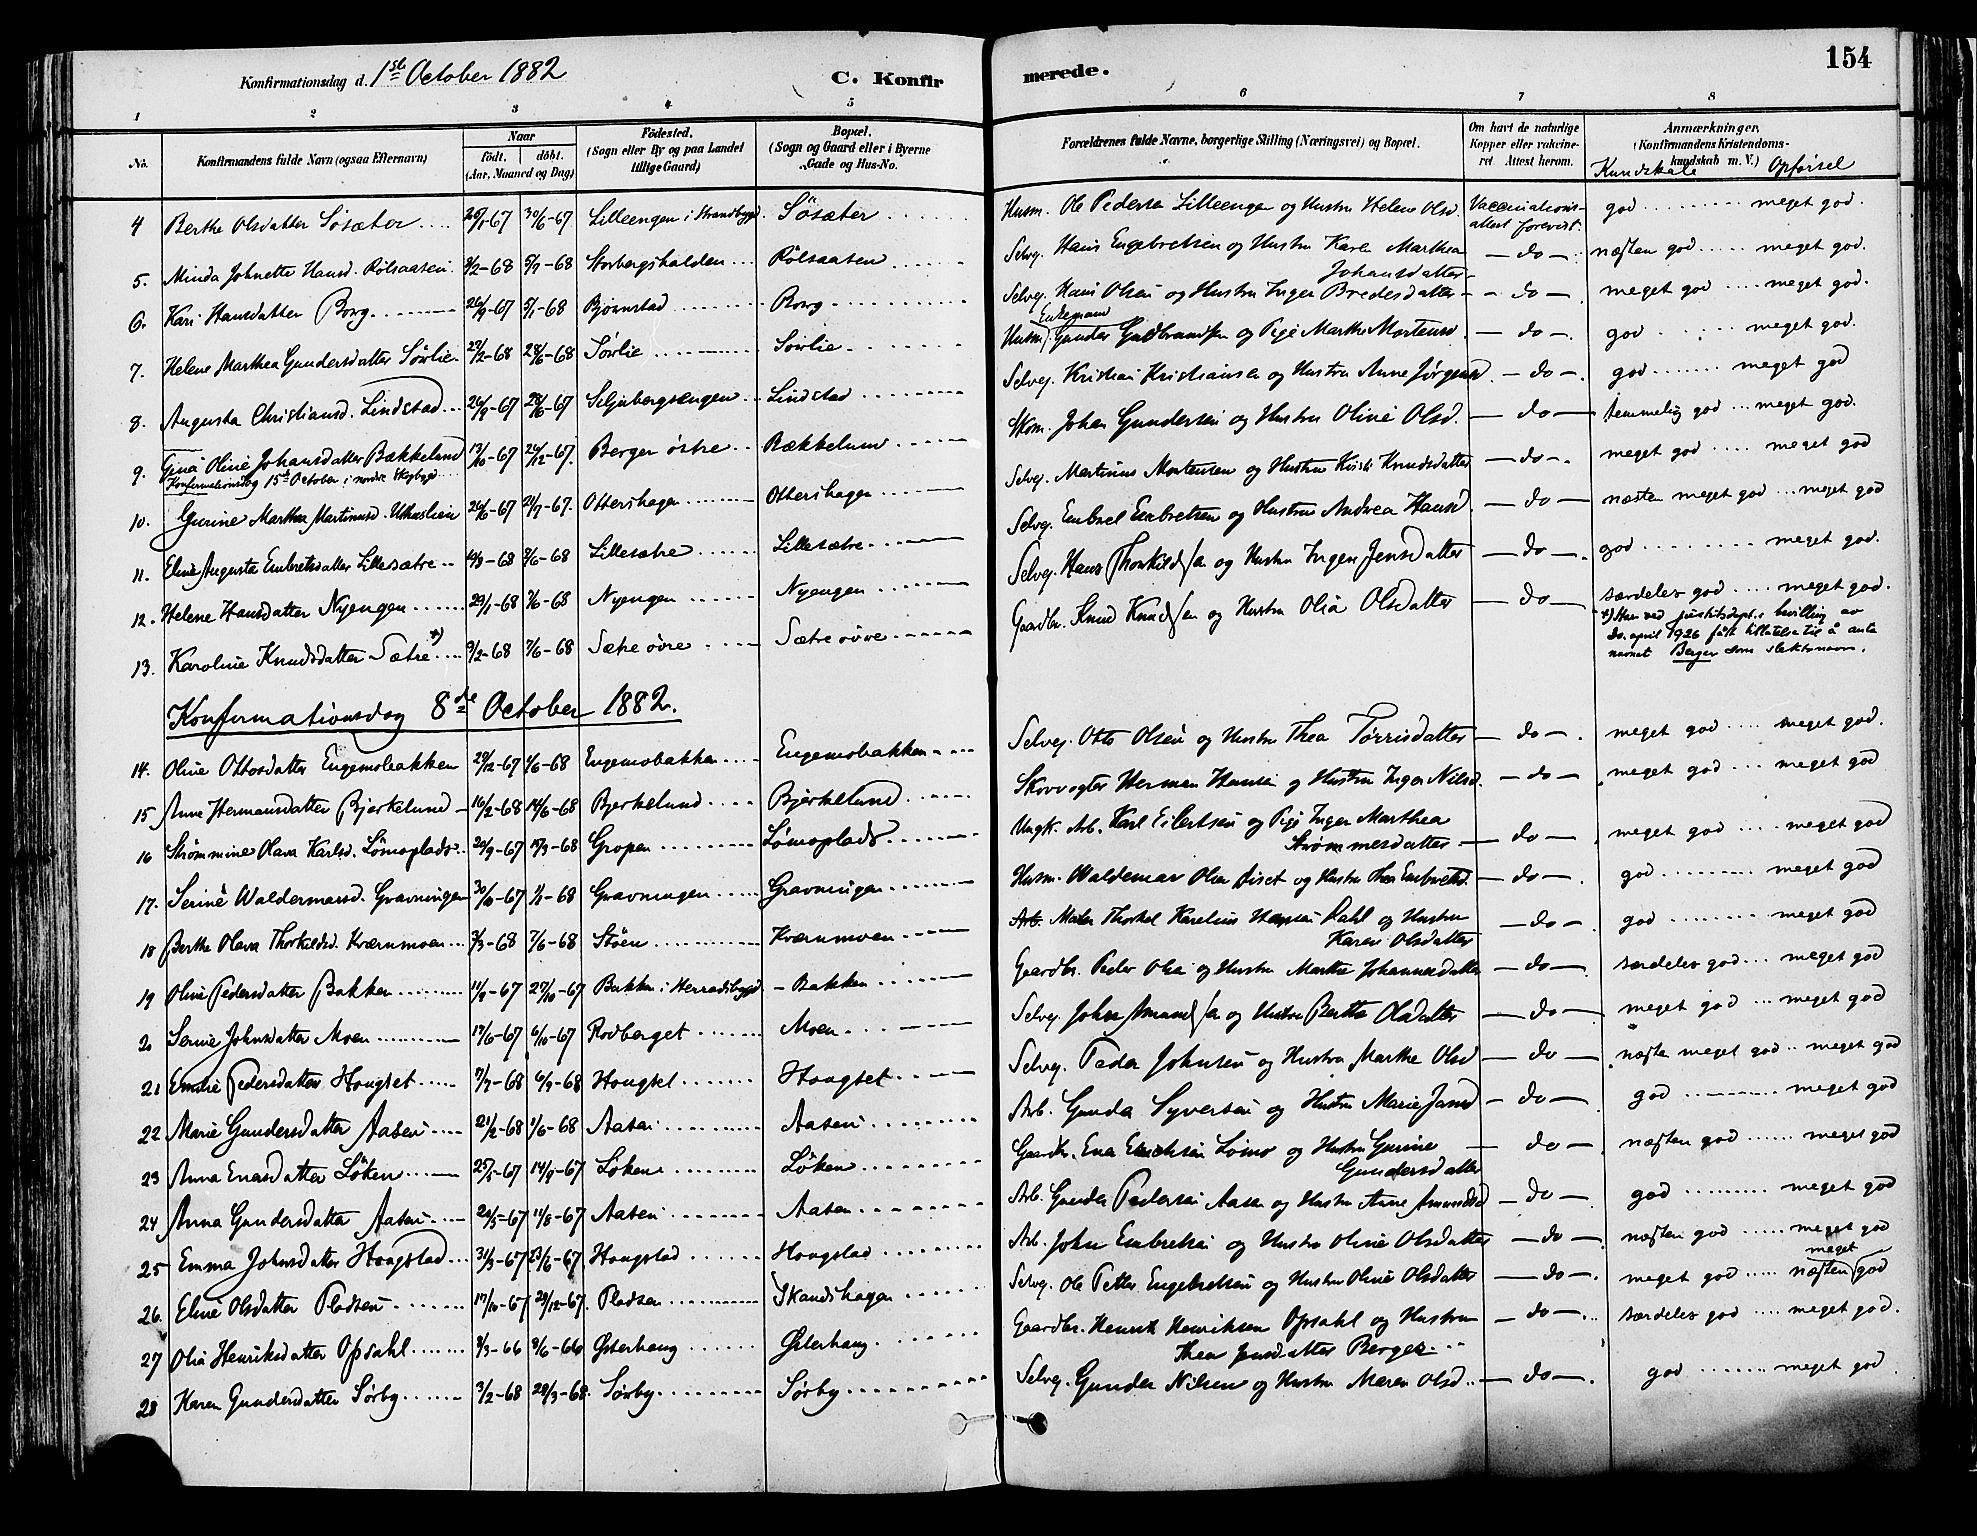 154
Konfirmationsdag d. 1ste October 1882 C. Konfirmerede.
1 2 3 4 5 6 7 8
No. Konfirmandens fulde Navn (ogsaa Efternavn) Naar født. døbt. (Aar, Maaned og Dag) Fødested. (Sogn eller By og paa Landet tillige Gaard) Bopæl. (Sogn og Gaard eller i Byerne Gade og Hus-No. Forældrenes fulde Navne, borgerlige Stilling (Næringsvei) og Bopæl. Om havt de naturlige Kopper eller vakcineret. Attest herom. Anmærkninger. (Konfirmandens Kristendomskundskab m. V.) Kundskab Opførsel
4 Berthe Olsdatter Søsæter 30/6-67 Lilleengen i Strandbygd. Søsæter Husm. Ole Pedersen Lilleengen og Hustru Helene Olsd. Vaccinationsattest forevist. god meget god.
5. Minda Johnette Hansd. Rølsaasen 5/7-68 Storbergshalden Rølsaasen Selvej. Hans Engebretsen og Hustru Karen Marthea Johansdatter do næsten god meget god.
6. Kari Hansdatter Borg 26/9-67 5/1-68 Bjørnstad Borg Selvej. Hans Olsen og Hustru Inger Bredesdatter do meget god meget god.
7. Helene Marthea Gundersdatter Sørlie 23/2-68 28/6-68 Sørlie Sørlie Husm. Enkemand Gunder Gudbrandsen og Pige Marthe Mortensd. do god meget god.
8. Augusta Christiansd. Lindstad 26/9-67 Seljebergsengen Lindstad Selvej. Kristian Kristiansen og Hustru Anne Jørgensd. do god meget god
9. Gina Oline Johansdatter Bækkelund 13/10-67 26/12-67. Berger østre Bækkelund Skom. Johan Gundersen og Hustru Oline Olsd. do temmelig god meget god.
Konfirmationsdag 15de October i nordre Skogbygd
10. Gurine Marthea Martinusd. Uthuslien 26/6-67 21/7-67. Ottershagen Ottershagen Selvej. Martinus Mortensen og Hustru Kirsti Knudsdatter do meget god meget god
11. Eline Augusta Embretsdatter Lillesætre Lillesætre Lillesætre Selvej. Embret Embretsen og Hustru Andrea Hansd. do næsten meget god meget god
12. Helene Hansdatter Nyengen 29/1-68 7/6-68 Nyengen Nyengen Selvej. Hans Thorkildsen og Hustru Inger Jensdatter do god meget god.
13. Karoline Knudsdatter Sætre *) 9/2-68 7/6-68 Sætre øvre Sætre øvre Gaardbr. Knud Knudsen og Hustru Olia Olsdatter do særdeles god meget god.
*) Har ved justitsdept.s bevilling av
do. april 1926 fått tillatelse til å anta
navnet Berger som slektsnavn.
Konfirmationsdag 8de October 1882.
14. Oline Ottosdatter Engemobakken 29/12-67 1/6-68 Engemobakken Engemobakken Selvej. Otto Olsen og Hustru Thea Tørrisdatter do meget god meget god.
15 Anne Hermansdatter Bjerkelund 16/2-68 14/6-68 Bjerkelund Bjerkelund Skovvogter Herman Hansen og Hustru Inger Nilsd. do meget god meget god
16 Strømmine Olava Karlsd. Lømoplads 20/9-67 Gropen Lømoplads Ungk. Arb. Karl Eilertsen og Pige Inger Marthea Strømmesdatter do meget god meget god
17. Serine Waldemarsd. Gravningen 30/6-67 1/1-68 Gravningen Gravningen Husm. Waldemar Olsen og Hustru Thea Embretsd. do god meget god
18 Berthe Olava Thorkildsd. Kværnmoen 3/3-68 7/6-68 Støen Kværnmoen Arb. Maler Thorkel Karelius Hansen Dahl og Hustru Karen Olsdatter do god meget god
19 Oline Pedersdatter Bakken 11/9-67 27/10-67 Bakken i Herradsbygd Bakken Gaardbr. Peder Olsen og Hustru Marthe Johannesdatter do særdeles god meget god
20 Serine Johnsdatter Moen 17/6-67 6/10-67 Rodberget Moen Selvej. John Amundsen og Hustru Berthe Olsdatter do meget god meget god
21 Emilie Pedersdatter Hougset 7/7-68 6/9-68 Hougset Hougset Selvej. Peder Johnsen og Hustru Marthe Olsd do næsten meget god meget god
22 Marie Gundersdatter Aasen 21/2-68 1/6-68 Aasen Aasen Arb. Gunder Syversen og Hustru Marie Jansd do god meget god
23 Anna Enersdatter Løken 25/5-67 14/9-67 Løken Løken Gaardbr. Ener Erichsen Lømo og Hustru Gurine Gundersdatter do næsten god meget god
24 Anna Gundersdatter Aasen 20/5-67 11/8-67 Aasen Aasen Arb. Gunder Pedersen Aasen og Hustru Anne Amundsd do god meget god
25 Emma Johnsdatter Hougstad 31/3-67 23/6-67 Hougstad Hougstad Arb. John Embretsen og Hustru Oline Olsdatter do næsten god meget god
26. Eline Olsdatter Pladsen 17/10-67 29/12-67. Pladsen Skandshagen Selvej. Ole Petter Engebretsen og Hustru Oline Olsdatter do meget god næsten meget god
27 Olia Henriksdatter Opsahl 3/3-66 Østerhaug Østerhaug Gaardbr. Henrik Henriksen Opsahl og Hustru Thea Jensdatter Berger do særdeles god meget god.
28 Karen Gundersdatter Sørby 3/2-68 29/3-68. Sørby Sørby Selvej. Gunder Nilsen og Hustru Maren Olsd. do god meget god